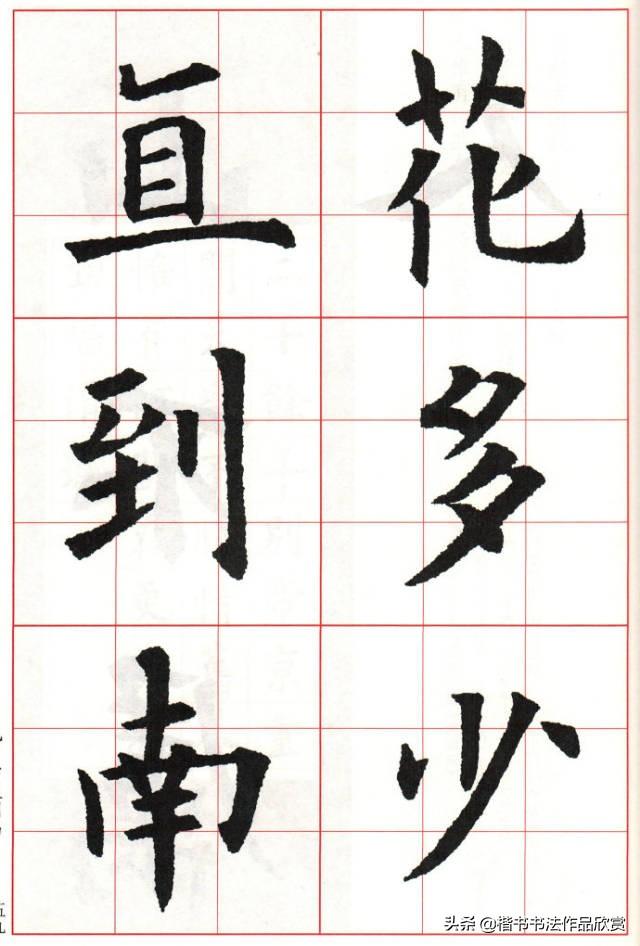 花多少
直到南
头条 @楷书书法作品欣赏